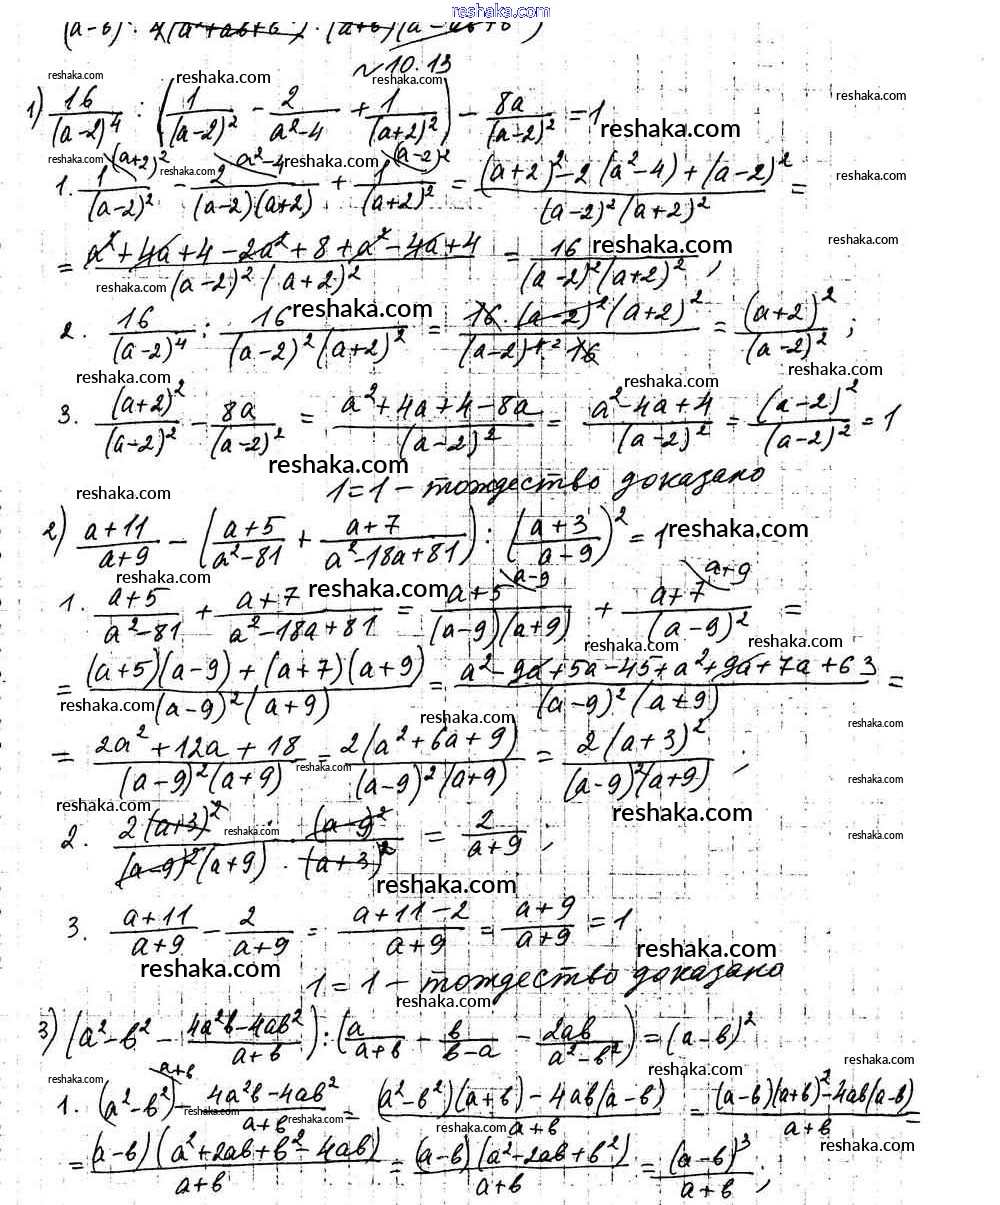 reshaka.com
(a-b) · 4(a²+ab+b²) · (a+b)(a²-ab+b²)
№10.13
1) 16/(a-2)⁴ : (1/(a-2)² - 2/(a²-4) + 1/(a+2)²) - 8a/(a-2)² = 1
1. 1/(a-2)² - 2/((a-2)(a+2)) + 1/(a+2)² = ((a+2)² - 2(a²-4) + (a-2)²)/((a-2)²(a+2)²) =
= (a²+4a+4-2a²+8+a²-4a+4)/((a-2)²(a+2)²) = 16/((a-2)²(a+2)²);
2. 16/(a-2)⁴ : 16/((a-2)²(a+2)²) = (16·(a-2)²(a+2)²)/((a-2)⁴·16) = (a+2)²/(a-2)²;
3. (a+2)²/(a-2)² - 8a/(a-2)² = (a²+4a+4-8a)/(a-2)² = (a²-4a+4)/(a-2)² = (a-2)²/(a-2)² = 1
1=1 – тождество доказано
2) (a+11)/(a+9) - ((a+5)/(a²-81) + (a+7)/(a²-18a+81)) : ((a+3)/(a-9))² = 1
1. (a+5)/(a²-81) + (a+7)/(a²-18a+81) = (a+5)/((a-9)(a+9)) + (a+7)/(a-9)² =
= ((a+5)(a-9)+(a+7)(a+9))/((a-9)²(a+9)) = (a²-9a+5a-45+a²+9a+7a+63)/((a-9)²(a+9)) =
= (2a²+12a+18)/((a-9)²(a+9)) = 2(a²+6a+9)/((a-9)²(a+9)) = 2(a+3)²/((a-9)²(a+9));
2. 2(a+3)²/((a-9)²(a+9)) · (a-9)²/(a+3)² = 2/(a+9);
3. (a+11)/(a+9) - 2/(a+9) = (a+11-2)/(a+9) = (a+9)/(a+9) = 1
1=1 – тождество доказано
3) (a²-b² - (4a²b-4ab²)/(a+b)) : (a/(a+b) - b/(b-a) - 2ab/(a²-b²)) = (a-b)²
1. (a²-b²) - (4a²b-4ab²)/(a+b) = ((a²-b²)(a+b)-4ab(a-b))/(a+b) = ((a-b)(a+b)²-4ab(a-b))/(a+b) =
= (a-b)(a²+2ab+b²-4ab)/(a+b) = (a-b)(a²-2ab+b²)/(a+b) = (a-b)³/(a+b);